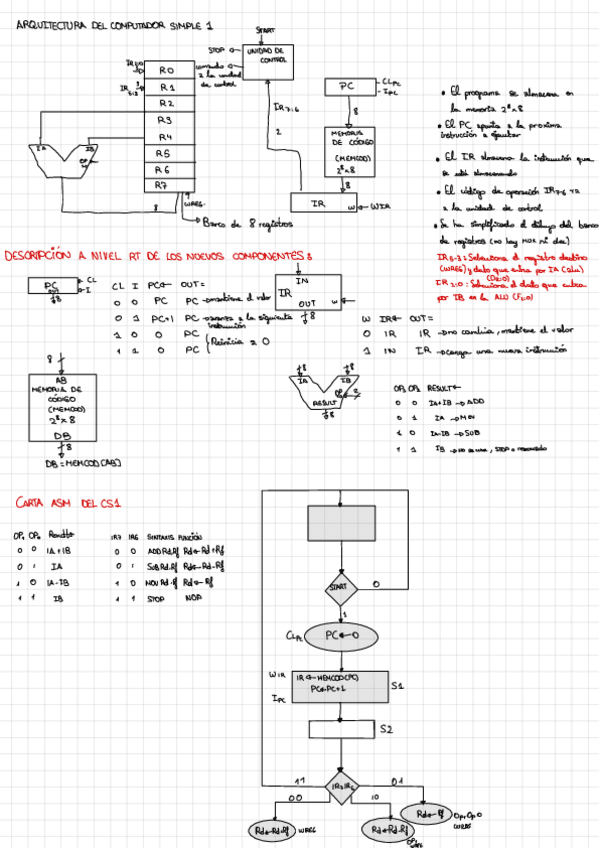 ARQUITECTURA DEL COMPUTADOR SIMPLE 1
START
STOP
UNIDAD DE CONTROL
comando a la unidad de control
R0
R1
R2
R3
R4
R5
R6
R7
IA
IB
OP
8
WREG
Banco de 8 registros
IR7-6
2
PC
CLPC
IPC
8
MEMORIA DE CÓDIGO
(MEMCOD)
2^8x8
8
IR
W
WIR
• El programa se almacena en
la memoria 2^8x8
• El PC apunta a la proxima
instrucción a ejecutar
• El IR almacena la instrucción que
se está
• El código de operación IR7-6 va
a la unidad de control
• Se ha simplificado el dibujo del banco
de registros (no hay MUX ni dec)
IR5-3: Selecciona el registro destino
(WREG) y dato que entra por IA (alu)
IR2-0: Selecciona el dato que entra
por IB en la ALU
DESCRIPCIÓN A NIVEL RT DE LOS NUEVOS COMPONENTES:
PC
OUT
CL
I
8
CL I PC← OUT=
0 0 PC PC → mantiene el valor
0 1 PC+1 PC → avanza a la siguiente instrucción
1 0 0 PC
1 1 0 PC
Reinicia a 0
IN
IR
OUT
W
8
W IR← OUT=
0 IR IR → no cambia, mantiene el valor
1 IN IR → carga una nueva instrucción
8
AB
MEMORIA DE
CÓDIGO
(MEMCOD)
2^8x8
DB
8
DB=MEMCOD[AB]
8
8
IA
IB
OP
2
RESULT
8
OP1 OP0 RESULT←
0 0 IA+IB → ADD
0 1 IA → MOV
1 0 IA-IB → SUB
1 1 IB → no se usa, STOP
CARTA ASM DEL CS1
OP1 OP0 Result
0 0 IA+IB
0 1 IA
1 0 IA-IB
1 1 IB
IR7 IR6 SINTAXIS FUNCIÓN
0 0 ADD Rd,Rf Rd←Rd+Rf
0 1 SUB Rd,Rf Rd←Rd-Rf
1 0 MOV Rd,Rf Rd←Rf
1 1 STOP NOP
START
0
1
CLPC
PC←0
WIR
IPC
IR←MEMCOD(PC)
PC←PC+1
S1
S2
IR7IR6
11
01
00
10
Rd←Rd-Rf
WREG
Rd←Rd-Rf
OP1
WREG
Rd←Rf
OP1 OP0
WREG